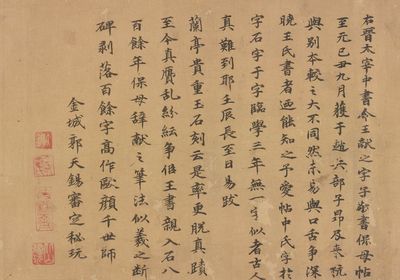 右晉太宰中書令王獻之字子敬書保母帖
至元己丑九月獲于趙兵部子昂及来杭
與別本較之大不同然未易與口舌爭深
曉王氏書者迺能知之予愛帖中氏字於
字石字于字臨學三年無一字似者古人
真難到耶壬辰長至日易跋
蘭亭貴重玉石刻云是率更脫真蹟
至今真贗乱紛紜争倍王書親入石八
百餘年保母辭獻之筆法似羲之斷
碑剥落百餘字高作歐顏千世師
金城郭天錫審定秘玩